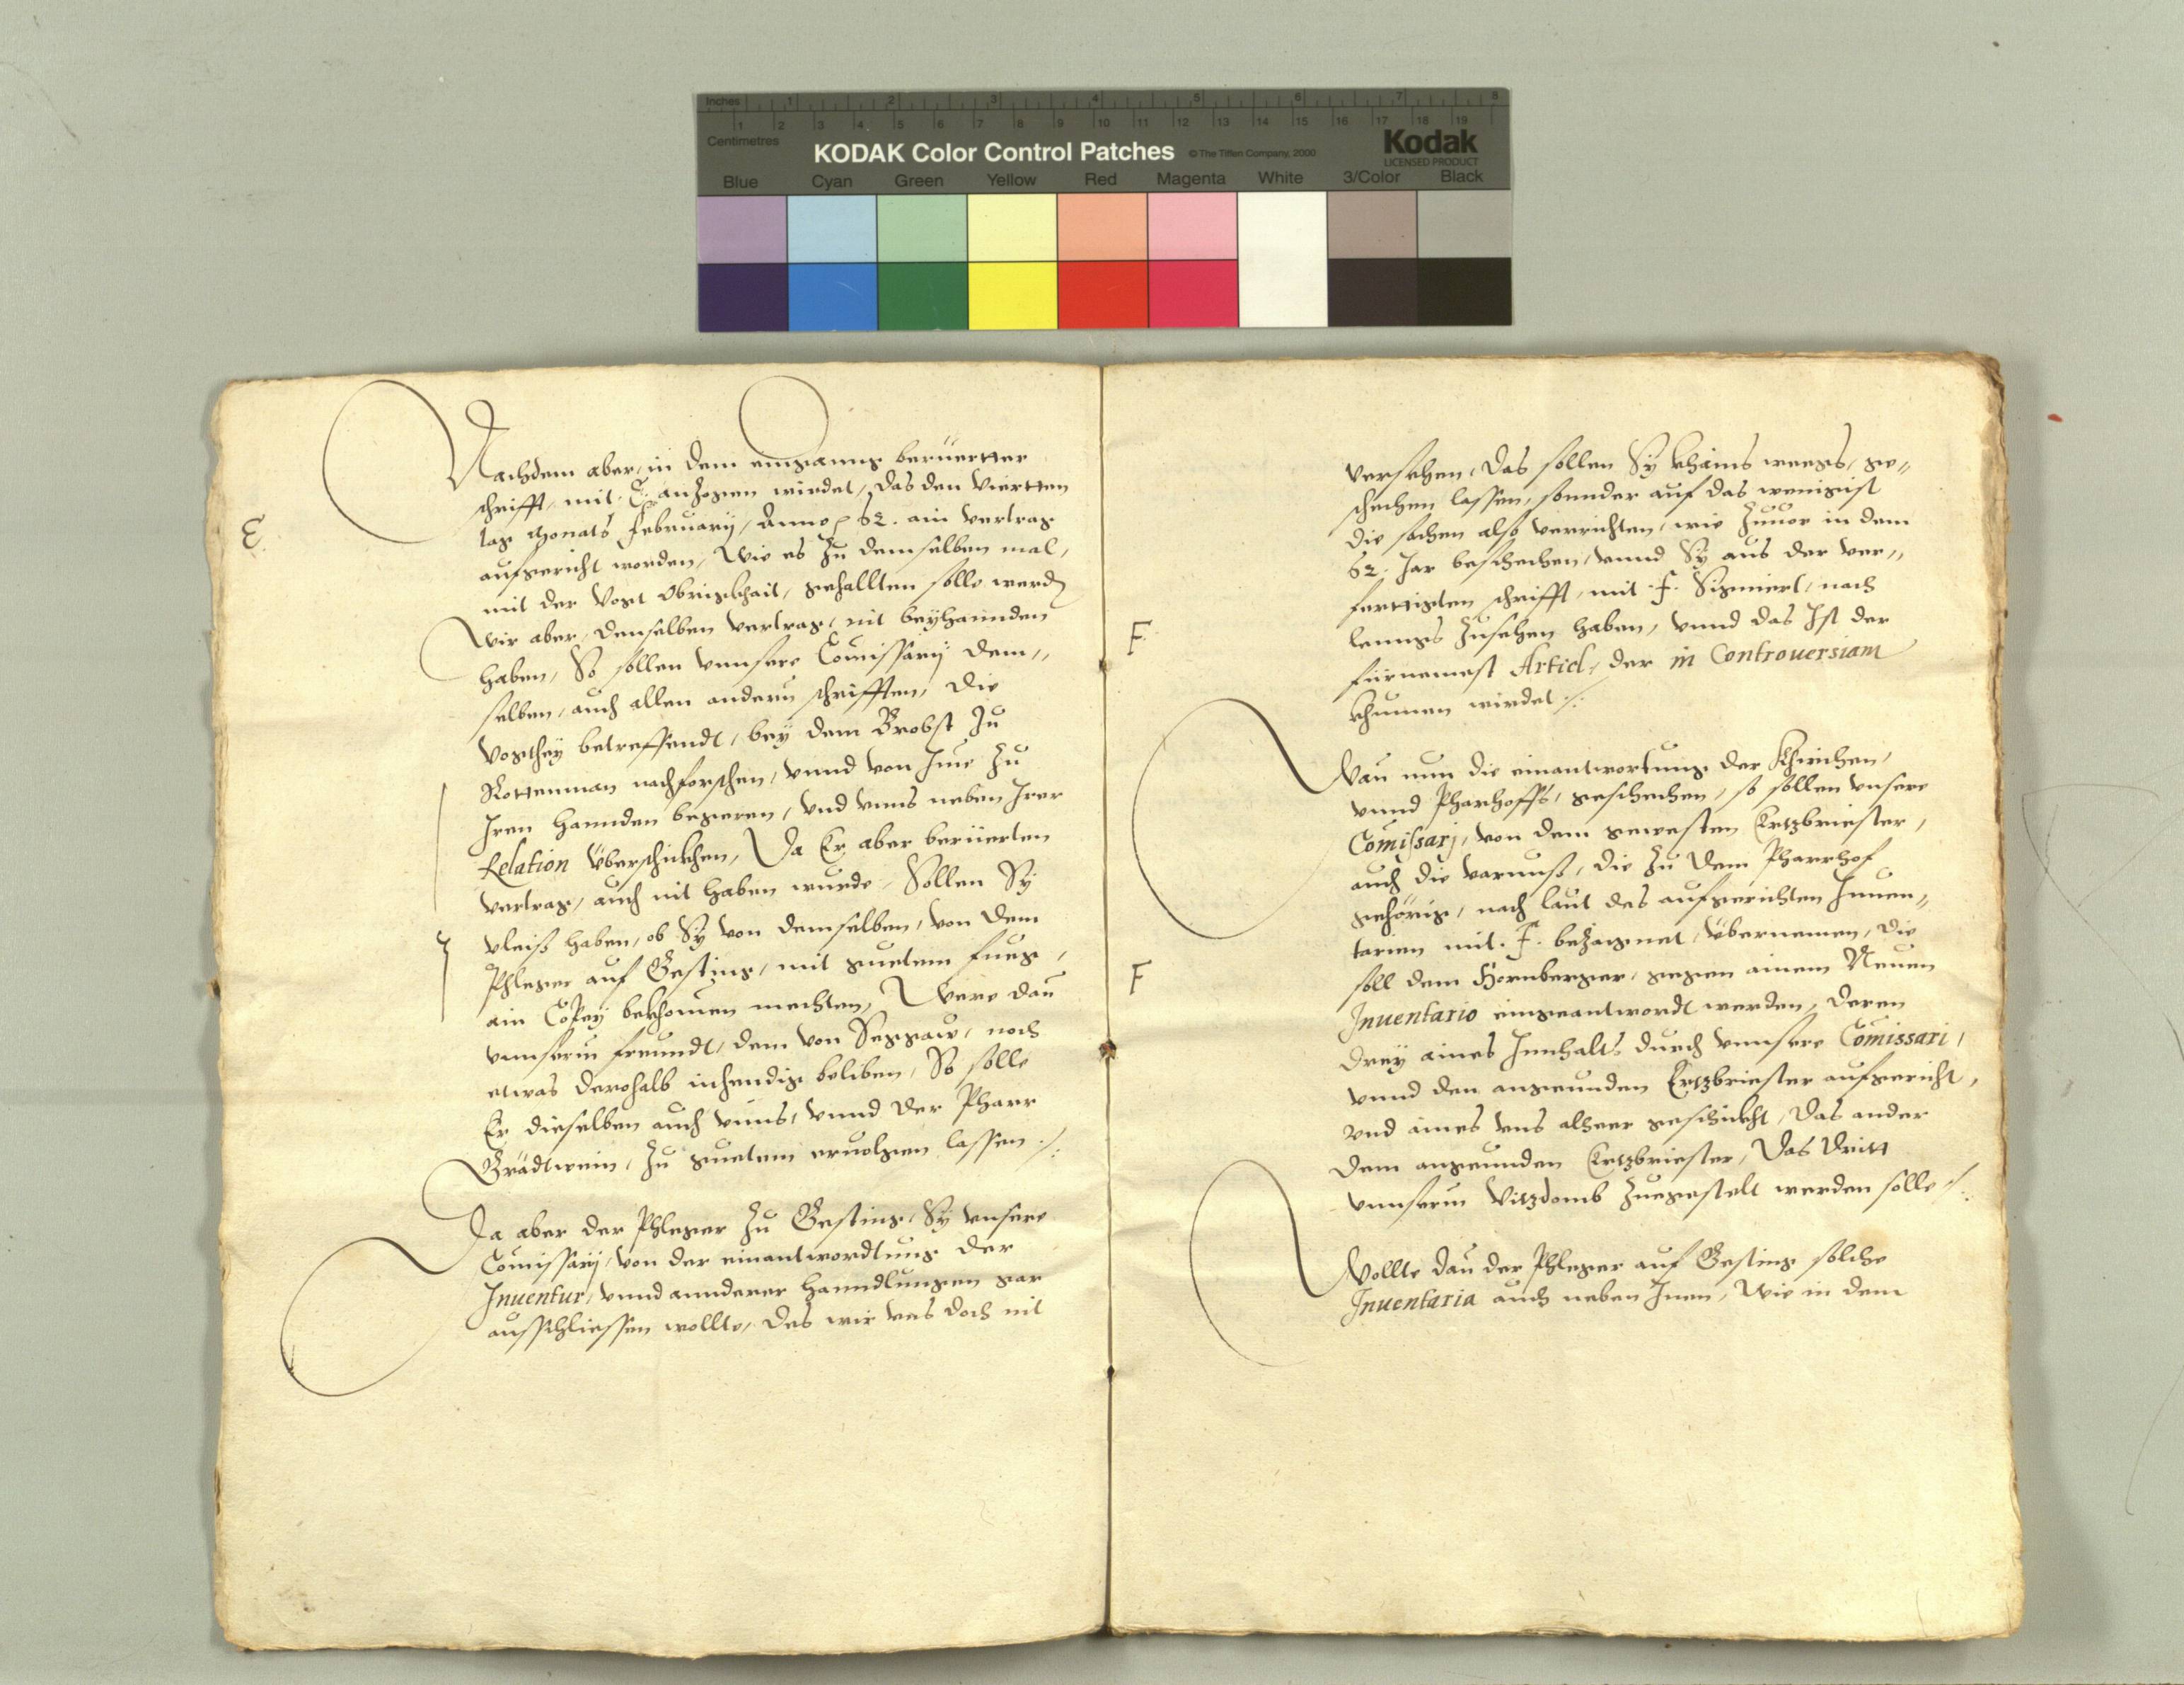 Inches 1 2 3 4 5 6 7 8
1 2 3 4 5 6 7 8 9 10 11 12 13 14 15 16 17 18 19
Centimetres
KODAK Color Control Patches © The Tiffen Company, 2000
Kodak
LICENSED PRODUCT
Blue Cyan Green Yellow Red Magenta White 3/Color Black
Nachdem aber, in dem eingang beruertter
schrifft, mit E. anzogen wirdet, das den Viertten
E.
tag Monats February, Anno 62. ain vertrag
aufgericht worden, Wie es zu demselben mal,
mit der Vogt Obrigkhait, gehallten solle werden
Wir aber, denselben vertrag, nit beyhannden
haben, So sollen vnnsere Comissarij dem„
selben, auch allen andern schrifften, die
Vogthey betreffendt, bey dem Brobst zu
Rottenman nachforschen, vnnd von Ime zu
Iren hannden begeren, vnd vnns neben Irer
Relation überschickhen, Da Er aber beruerten
vertrag, auch nit haben wurde, Sollen Sy
vleiß haben, ob Sy von demselben, von dem
Phleger auf Gesting, mit guetem fueg,
ain Copey bekhomen mechten, Were dan
vnnserm freundt, dem von Seggaw, noch
etwas derohalb inhendig beliben, So solle
Er dieselben auch vnns, vnnd der Pharr
Grädtwein, zu guetem ervolgen lassen ./.
Da aber der Phleger zu Gesting, Sy vnsere
Comissarij, von der einantwordtung der
Inuentur, vnnd annderer hanndlungen gar
ausschliessen wollte, des wir vns doch nit
versehen, Das sollen Sy khains weegs, ge„
schechen lassen, sonnder auf das wenigist
die sachen also verrichten, wie zuuor in dem
62. Jar beschechen, vnnd Sy aus der ver„
fertigten schrifft, mit F. Signiert, nach
F.
lenngs zusehen haben, vnnd das Ist der
fürnemest Articl, der in Controuersiam
khumen wirdet ./.
Wan nun die einantwortung der Khirchen,
vnnd Pharhoffs, geschechen, so sollen vnsere
Comissarj, von dem gewesten Ertzbriester,
auch die varnuß, die zu dem Pharrhof
gehörig, nach laut des aufgerichten Inuen„
tarien mit F. bezaignet, übernemen, die
F
soll dem Hornberger, gegen ainem Neuen
Inuentario eingeantwordt werden, deren
drey aines Innhalts durch vnnsere Comissari,
vnnd den angeunden Ertzbriester aufgericht,
vnd aines vns alheer geschickht, das ander
dem angeunden Ertzbriester, Das dritt
vnnserm Vitzdomb zuegestelt werden solle ./.
Wollte dan der Phleger auf Gesting solche
Inuentaria auch neben Inen, Wie in dem